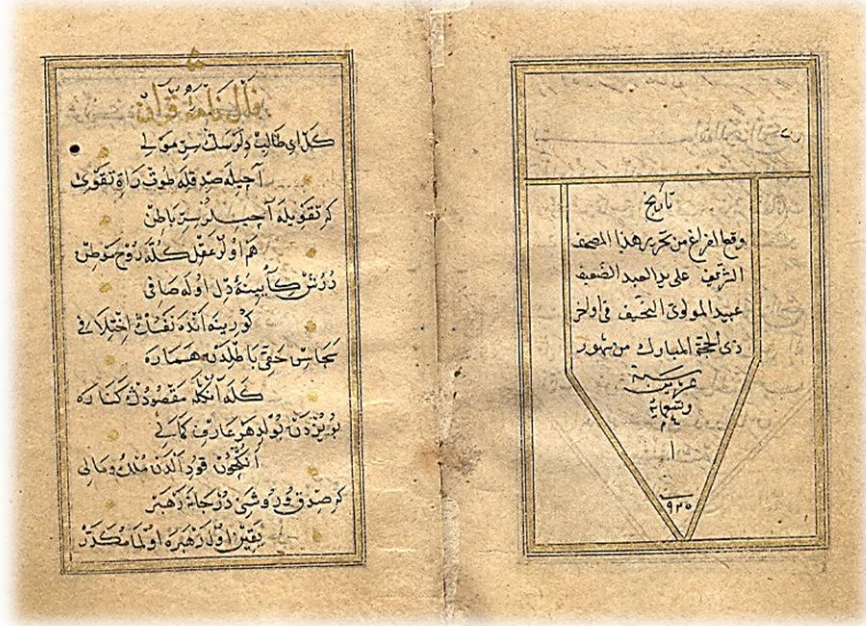 تاريخ
وقع الفراغ من تحرير هذا المصحف
الشريف على يد العبد الضعيف
عبيد المولوى النحيف فى اواخر
ذى الحجة المبارك من شهور
سنة
عشرين
وتسعماية
٩٢٥
فال نامۀ قرآن
كل اى طالب دلرسك سر مولى
آجيله صدقله طوت راه تقوى
كه تقويله آجيلر سر باطن
هم اولر عقل كله روح موطن
درش كآيينۀ دل اوله صافى
كورينه انده نفسك اختلافى
حقى باطلدن
كله آنكله مقصودك كناره
بو يوزدن بولدهر عارف كمالى
آنكچون قودى الدن ملك ومالى
كر صدق رهبر
يقين اول رهبره اولما مكدر